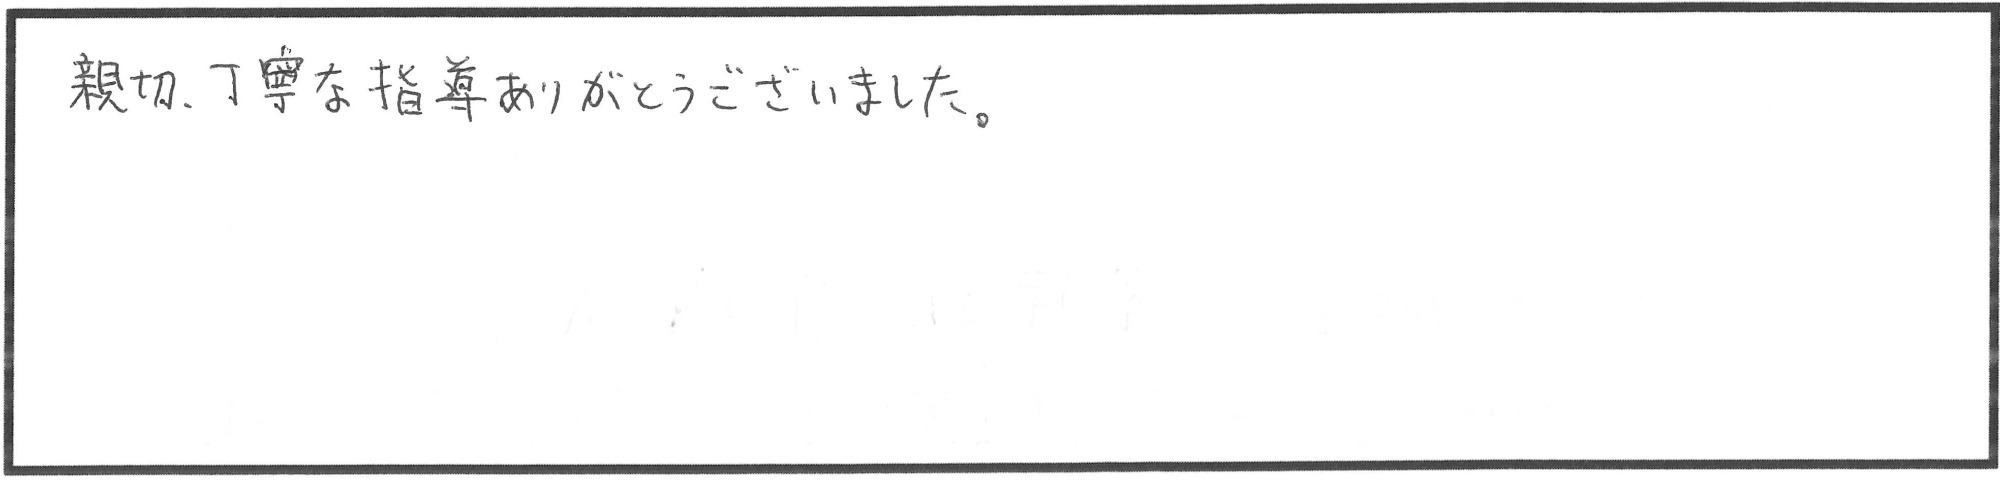 親切、丁寧な指導ありがとうございました。